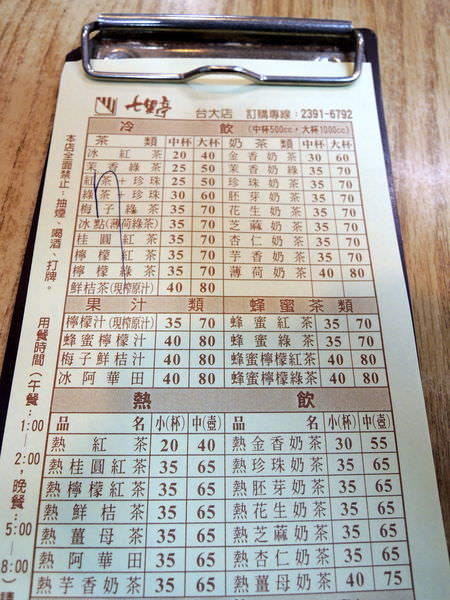 七里亭 台大店 訂購專線:2391-6792
冷 飲 (中杯500cc,大杯1000cc)
茶 類 中杯 大杯 奶 茶 類 中杯 大杯
冰紅茶 20 40 金香奶茶 30 60
茉香綠茶 25 50 茉香奶綠 35 70
紅茶+珍珠 25 50 珍珠奶茶 35 70
綠茶+珍珠 30 60 胚芽奶茶 35 70
梅子綠茶 35 70 花生奶茶 35 70
冰點(薄荷綠茶) 35 70 芝麻奶茶 35 70
桂圓紅茶 35 70 杏仁奶茶 35 70
檸檬紅茶 35 70 芋香奶茶 35 70
檸檬綠茶 35 70 薄荷奶茶 40 80
鮮桔茶(現榨原汁) 40 80
果 汁 類 蜂 蜜 茶 類
檸檬汁(現榨原汁) 35 70 蜂蜜紅茶 35 70
蜂蜜檸檬汁 40 80 蜂蜜綠茶 35 70
梅子鮮桔汁 40 80 蜂蜜檸檬紅茶 40 80
冰阿華田 40 80 蜂蜜檸檬綠茶 40 80
熱 飲
品 名 小(杯) 中(壺) 品 名 小(杯) 中(壺)
熱紅茶 20 40 熱金香奶茶 30 55
熱桂圓紅茶 35 65 熱珍珠奶茶 35 65
熱檸檬紅茶 35 65 熱胚芽奶茶 35 65
熱鮮桔茶 35 65 熱花生奶茶 35 65
熱薑母茶 35 65 熱芝麻奶茶 35 65
熱阿華田 35 65 熱杏仁奶茶 35 65
熱芋香奶茶 35 65 熱薑母奶茶 40 75
本店全面禁止:抽煙、喝酒、打牌。
用餐時間(午餐:1:00-2:00,晚餐:5:00-8:00)請